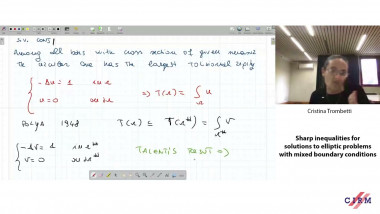 Among all bars with cross section of given measure
the circular one has the largest torsional rigidity
{ -Δu = 1 in Ω
u = 0 on ∂Ω
=> T(Ω) = ∫_Ω u
POLYA 1948 T(Ω) ≤ T(Ω^#) = ∫_Ω^# v
{ -Δv = 1 in Ω^#
v = 0 on ∂Ω^#
TALENTI'S =>
Cristina Trombetti
Sharp inequalities for
solutions to elliptic problems
with mixed boundary conditions
CIRM